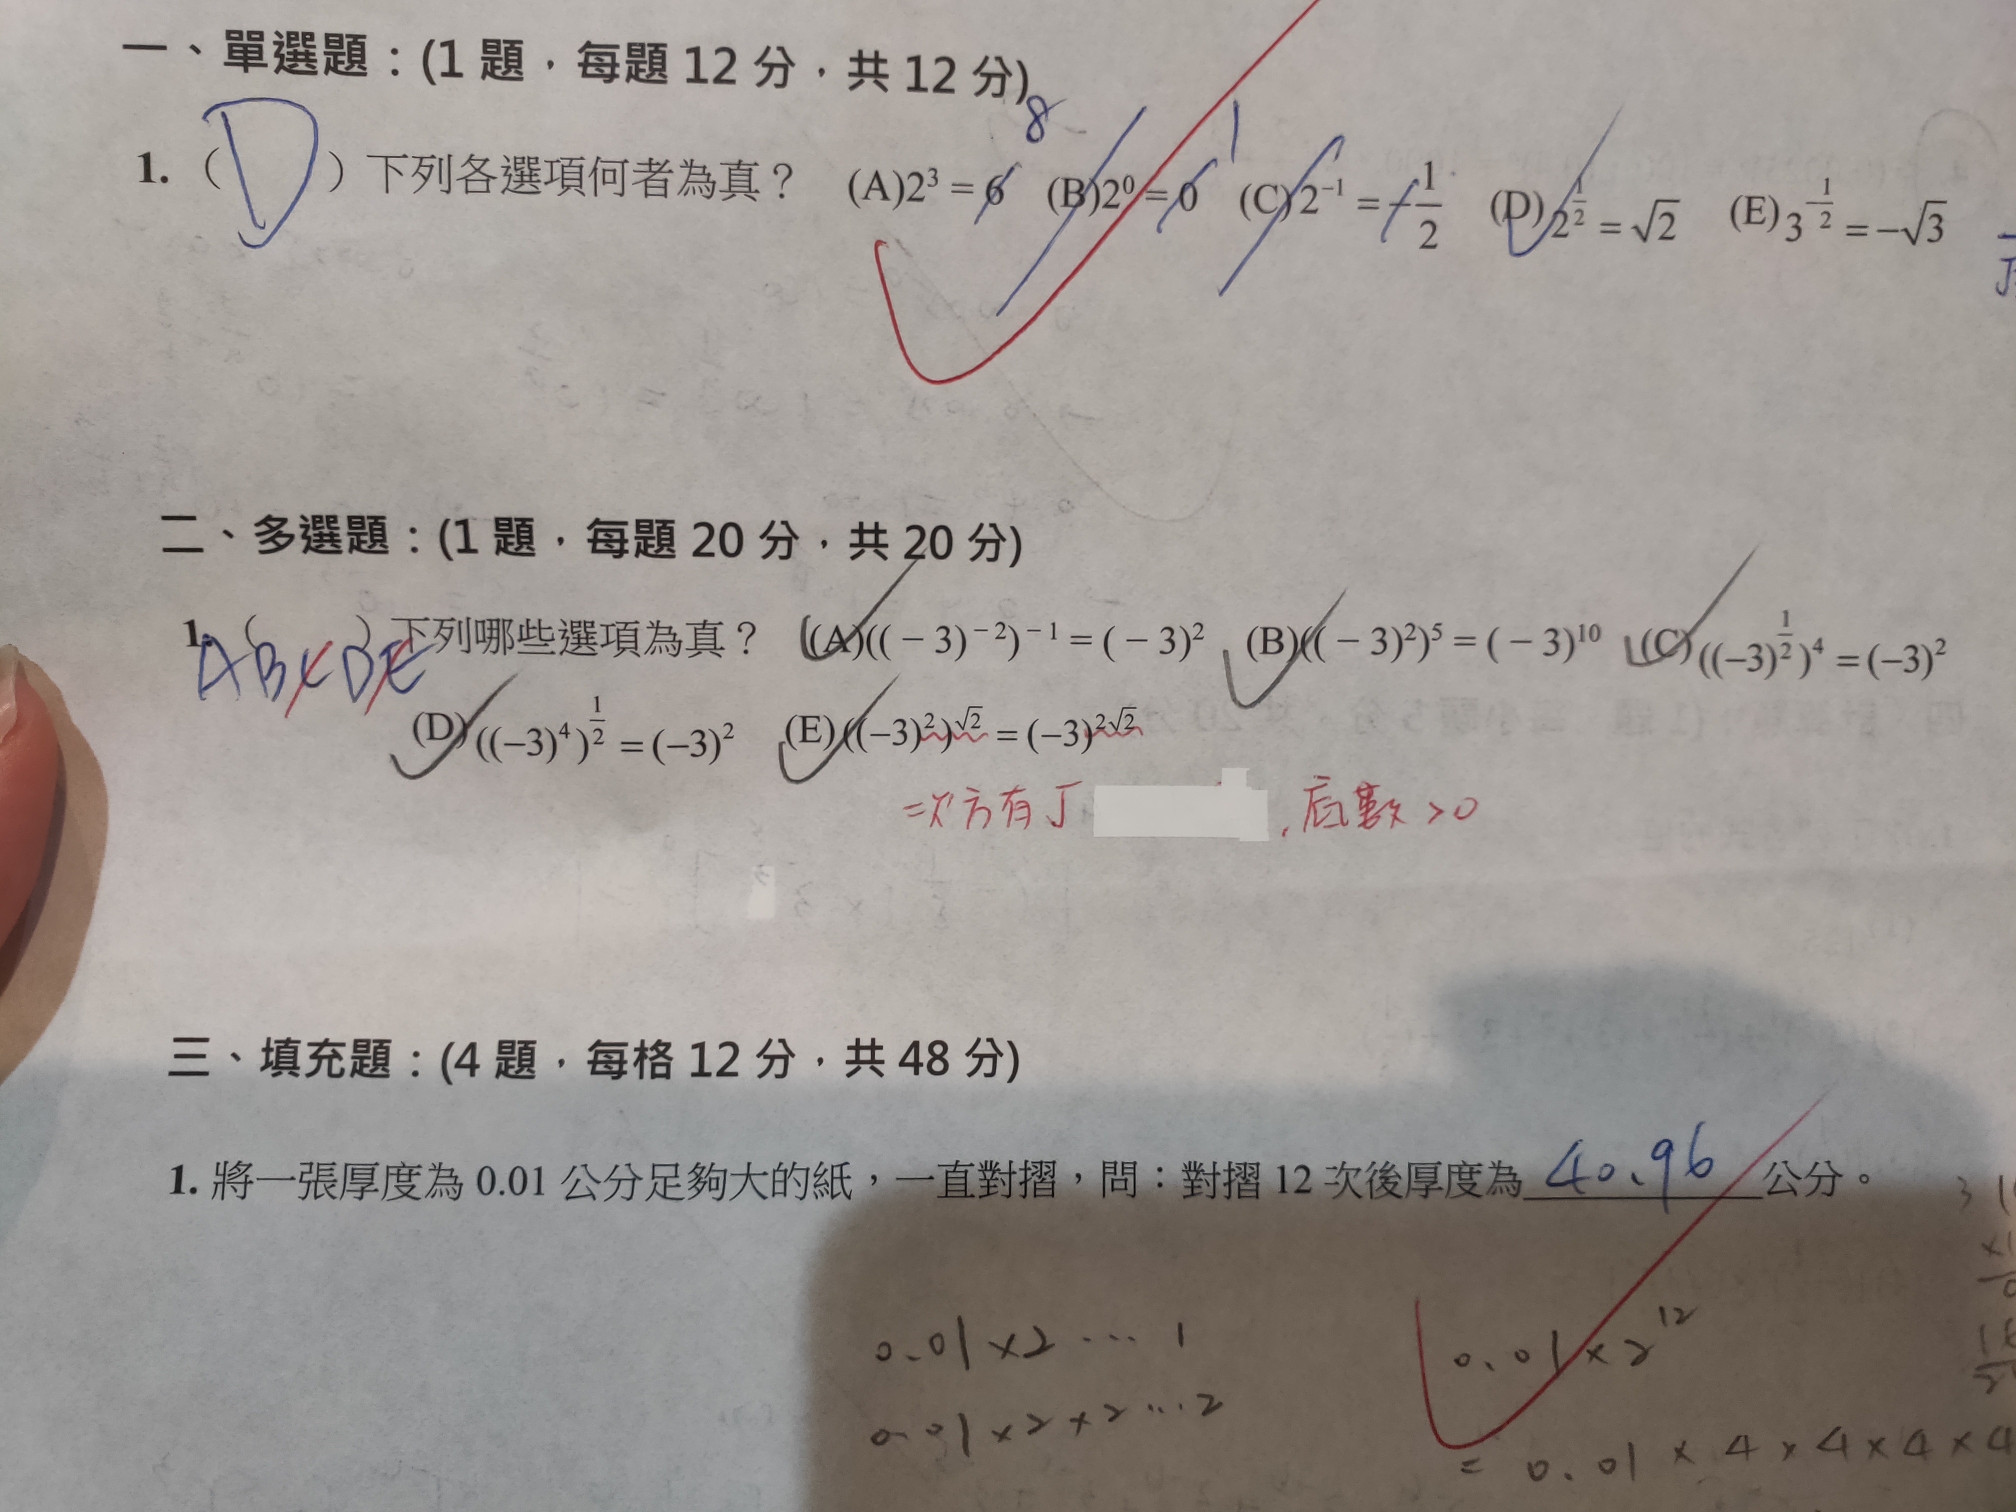 一、單選題：(1 題，每題 12 分，共 12 分)
8 1
1. ( D ) 下列各選項何者為真？ (A)2³ = 6 (B)2⁰ = 0 (C)2⁻¹ = −1/2 (D)2^(1/2) = √2 (E)3^(−1/2) = −√3
二、多選題：(1 題，每題 20 分，共 20 分)
1. ( ABCDE ) 下列哪些選項為真？ (A)((−3)⁻²)⁻¹ = (−3)² (B)((−3)²)⁵ = (−3)¹⁰ (C)((−3)^(1/2))⁴ = (−3)²
(D)((−3)⁴)^(1/2) = (−3)² (E)((−3)²)^√2 = (−3)^(2√2)
次方有√ ，底數 > 0
三、填充題：(4 題，每格 12 分，共 48 分)
1. 將一張厚度為 0.01 公分足夠大的紙，一直對摺，問：對摺 12 次後厚度為 40.96 公分。
0.01 × 2 ... 1
0.01 × 2¹²
0.01 × 2 × 2 ... 2
= 0.01 × 4 × 4 × 4 × 4